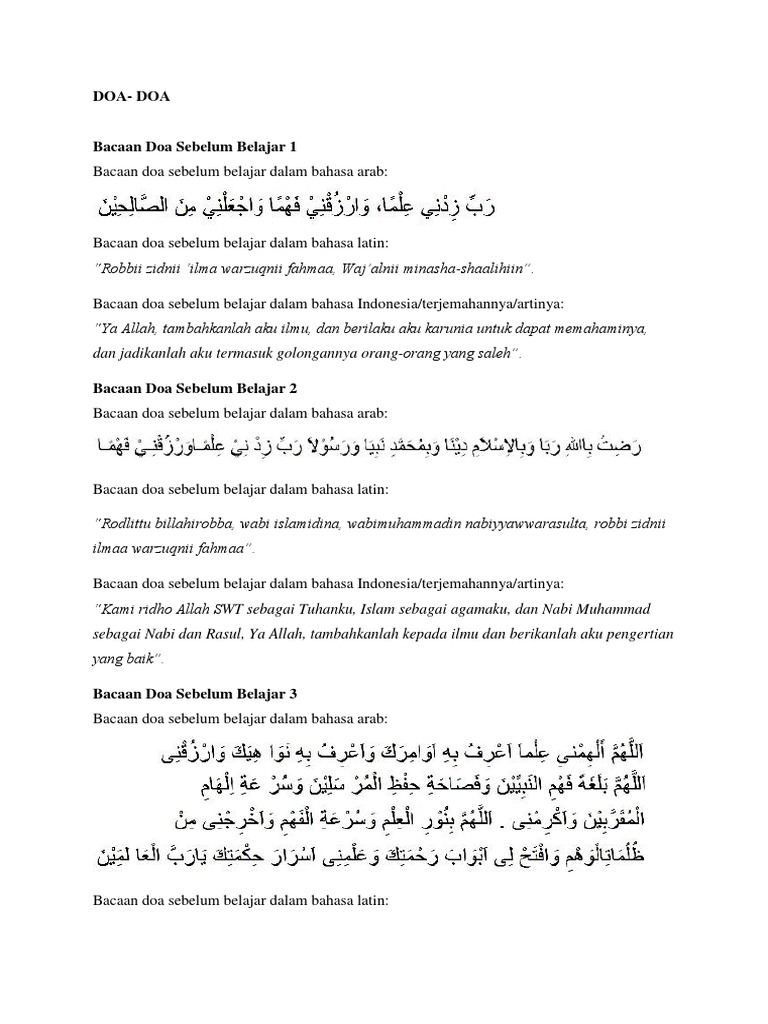 DOA- DOA
Bacaan Doa Sebelum Belajar 1
Bacaan doa sebelum belajar dalam bahasa arab:
رَبِّ زِدْنِي عِلْمًا، وَارْزُقْنِيْ فَهْمًا وَاجْعَلْنِيْ مِنَ الصَّالِحِيْنَ
Bacaan doa sebelum belajar dalam bahasa latin:
"Robbii zidnii 'ilma warzuqnii fahmaa, Waj'alnii minasha-shaalihiin".
Bacaan doa sebelum belajar dalam bahasa Indonesia/terjemahannya/artinya:
"Ya Allah, tambahkanlah aku ilmu, dan berilaku aku karunia untuk dapat memahaminya,
dan jadikanlah aku termasuk golongannya orang-orang yang saleh".
Bacaan Doa Sebelum Belajar 2
Bacaan doa sebelum belajar dalam bahasa arab:
رَضِتُ بِاللهِ رَبَا وَبِالْاِسْلَامِ دِيْنَا وَبِمُحَمَّدٍ نَبِيَا وَرَسُوْلاَ رَبِّ زِدْ نِيْ عِلْمَـاوَرْزُقْنِـيْ فَهْمًـا
Bacaan doa sebelum belajar dalam bahasa latin:
"Rodlittu billahirobba, wabi islamidina, wabimuhammadin nabiyyawwarasulta, robbi zidnii
ilmaa warzuqnii fahmaa".
Bacaan doa sebelum belajar dalam bahasa Indonesia/terjemahannya/artinya:
"Kami ridho Allah SWT sebagai Tuhanku, Islam sebagai agamaku, dan Nabi Muhammad
sebagai Nabi dan Rasul, Ya Allah, tambahkanlah kepada ilmu dan berikanlah aku pengertian
yang baik".
Bacaan Doa Sebelum Belajar 3
Bacaan doa sebelum belajar dalam bahasa arab:
اَللَّهُمَّ أَلْهِمْنِي عِلْماً اَعْرِفُ بِهِ اَوَامِرَكَ وَاَعْرِفُ بِهِ نَوَا هِيَكَ وَارْزُقْنِى
اَللَّهُمَّ بَلَغَةً فَهْمِ النَّبِيِّيْنَ وَفَصَاحَةِ حِفْظِ الْمُرْ سَلِيْنَ وَسُرْ عَةِ اِلْهَامِ
الْمُقَرَّبِيْنَ وَاَكْرِمْنِى . اَللَّهُمَّ بِنُوْرِ الْعِلْمِ وَسُرْعَةِ الْفَهْمِ وَاَخْرِجْنِى مِنْ
ظُلُمَاتِالْوَهْمِ وَافْتَحْ لِى اَبْوَابَ رَحْمَتِكَ وَعَلِّمْنِى اَسْرَارَ حِكْمَتِكَ يَارَبَّ الْعَا لَمِيْنَ
Bacaan doa sebelum belajar dalam bahasa latin: